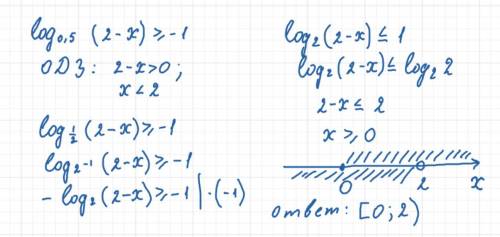 log₀,₅ (2-x) ≥ -1
ОДЗ: 2-x>0;
x<2
log½ (2-x) ≥ -1
log₂₋₁ (2-x) ≥ -1
- log₂ (2-x) ≥ -1 | ·(-1)
log₂ (2-x) ≤ 1
log₂ (2-x) ≤ log₂ 2
2-x ≤ 2
x ≥ 0
0 2 x
ответ: [0; 2)